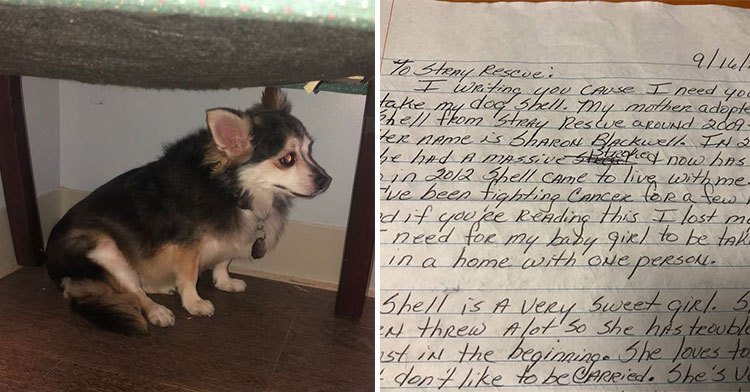 9/16/
To Stray Rescue:
I writing you cause I need you
take my dog Shell. My mother adopte
Shell from Stray Rescue around 2009.
Her name is Sharon Blackwell. In 2
he had a massive stroke d now has
in 2012 Shell came to live with me
I've been fighting Cancer for a few
d if you're reading this I lost m
I need for my baby girl to be tak
in a home with one person.
Shell is a very sweet girl. S
en threw alot so she has troubl
st in the beginning. She loves to
don't like to be carried. She's v